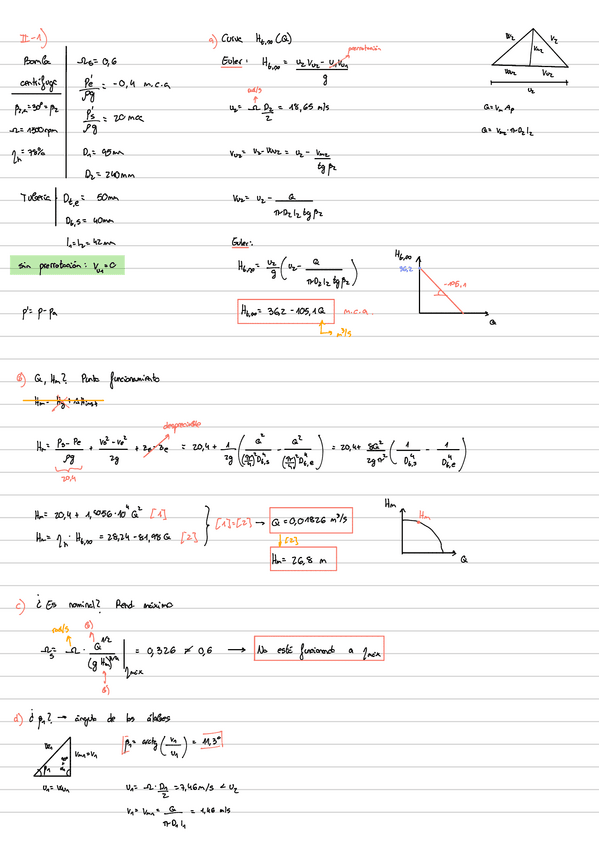 II-1)
Bomba
centrífuga
β2,∞ = 30° = β2
Ω = 1500 rpm
ηh = 78%
Ωs = 0,6
Pe'/ρg = -0,4 m.c.a
Ps'/ρg = 20 mca
D1 = 95 mm
D2 = 240 mm
Tubería
Dt,e = 50mm
Dt,s = 40mm
l1 = l2 = 42 mm
sin prerrotación: Vu1 = 0
p' = p - pa
a) Curva Ht,∞ (Q)
prerrotación
Euler: Ht,∞ = (u2 Vu2 - u1 Vu1)/g
rad/s
u2 = Ω D2/2 = 18,65 m/s
Vu2 = u2 - Wu2 = u2 - Vm2/tg β2
Vu2 = u2 - Q/(π D2 l2 tg β2)
Euler:
Ht,∞ = u2/g (u2 - Q/(π D2 l2 tg β2))
Ht,∞ = 36,2 - 105,1Q m.c.a.
m³/s
W2 V2
Vm2
Wu2 Vu2
u2
Q = Vm Ap
Q = Vm2 · π D2 l2
Ht,∞
36,2
-105,1
Q
b) Q, Hm? Punto funcionamiento
despreciable
Hm = (Ps - Pe)/ρg + (Vs² - Ve²)/2g + zs - ze = 20,4 + 1/2g (Q²/((π/4)² Dt,s⁴) - Q²/((π/4)² Dt,e⁴)) = 20,4 + 8Q²/(2gπ²) (1/Dt,s⁴ - 1/Dt,e⁴)
20,4
Hm = 20,4 + 1,9056·10⁴ Q² [1]
Hm = ηh · Ht,∞ = 28,24 - 81,98Q [2]
[1]=[2] → Q = 0,01826 m³/s
[2]
Hm = 26,8 m
Hm
Hm
Q
c) ¿Es nominal? Rend máximo
rad/s b)
Ωs = Ω · Q^1/2/(g Hm)^3/4 |ηmáx = 0,326 ≠ 0,6 → No está funcionando a ηmáx
b)
d) ¿β1? → ángulo de los álabes
W1
β1
90°
Vm1 = V1
u1 = Wu1
β1 = arctg (V1/u1) = 11,3°
u1 = Ω · D1/2 = 7,46 m/s < u2
V1 = Vm1 = Q/(π D1 l1) = 1,46 m/s